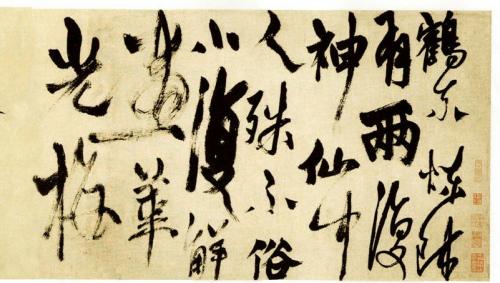 鶴東煉師
有兩復
神仙中
人殊不俗
小復解
畫華
光梅